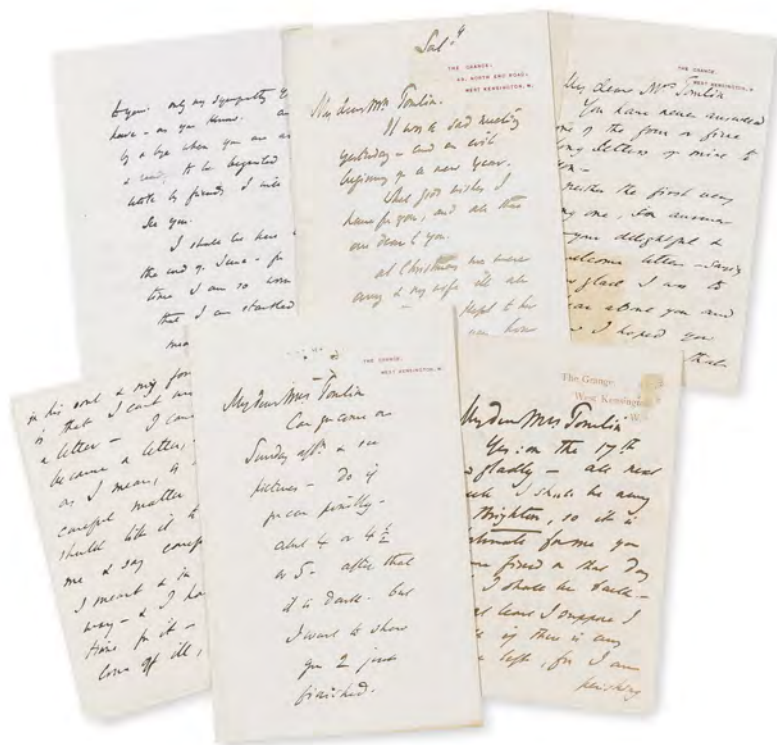 only my sympathy
have - as you know.
by & bye when you are
wrote by friends I will
see you.
I shall be here
the end of June - for
time I am so
that I can
Sat.y
THE GRANGE,
49, NORTH END ROAD,
WEST KENSINGTON, W.
My dear Mrs Tomlin.
It was a sad meeting
yesterday - and an evil
beginning of a new year.
What good wishes I
have for you, and all that
are dear to you.
at Christmas we were
away & my wife ill all
THE GRANGE,
WEST KENSINGTON, W.
My dear Mrs Tomlin
You have never answered
one of the four or five
long letters of mine to
neither the first very
one, in answer
your delightful &
welcome letter - saying
glad I was to
about you and
I hoped you
that
in his soul & my
is that I cant
a letter - I
became a letter,
as I mean, it
careful matter
should like it to
me & say
I meant & in
way - & I
time for it -
ill,
THE GRANGE,
WEST KENSINGTON, W.
My dear Mrs Tomlin
Can you come on
Sunday aftn & see
pictures - do if
you can possibly -
about 4 or 4½
or 5 - after that
it is dark. but
I want to show
you 2 just
finished.
The Grange
West Kensington
W.
My dear Mrs Tomlin
Yes: on the 17th
gladly - all next
I shall be away
Brighton, so it is
for me you
fixed on that day
I shall be back -
least I suppose I
if there is any
left, for I am
perishing